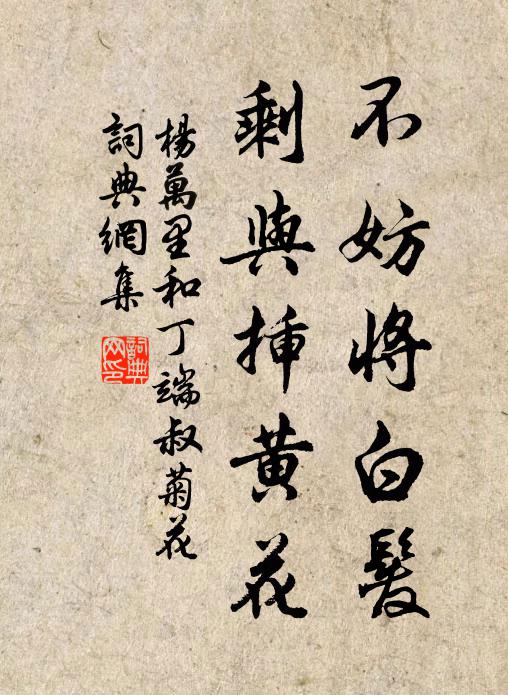 不妨將白髮
剩與插黃花
楊萬里和丁端叔菊花
詞典網集
詞典網印